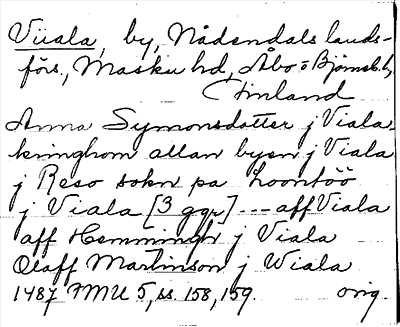 Viiala, by, Nådendals lands-
förs., Masku hd, Åbo o Björneb. l.,
Finland
Anna Symonsdotter j Viala -
kringhom allan byen j Viala
j Reso sokn pa Loontöö
j Viala [3 ggr] --- aff Viala
aff Hemmingh j Viala
Olaff Martinson j Wiala
1487 FMU 5, ss. 158, 159. orig.